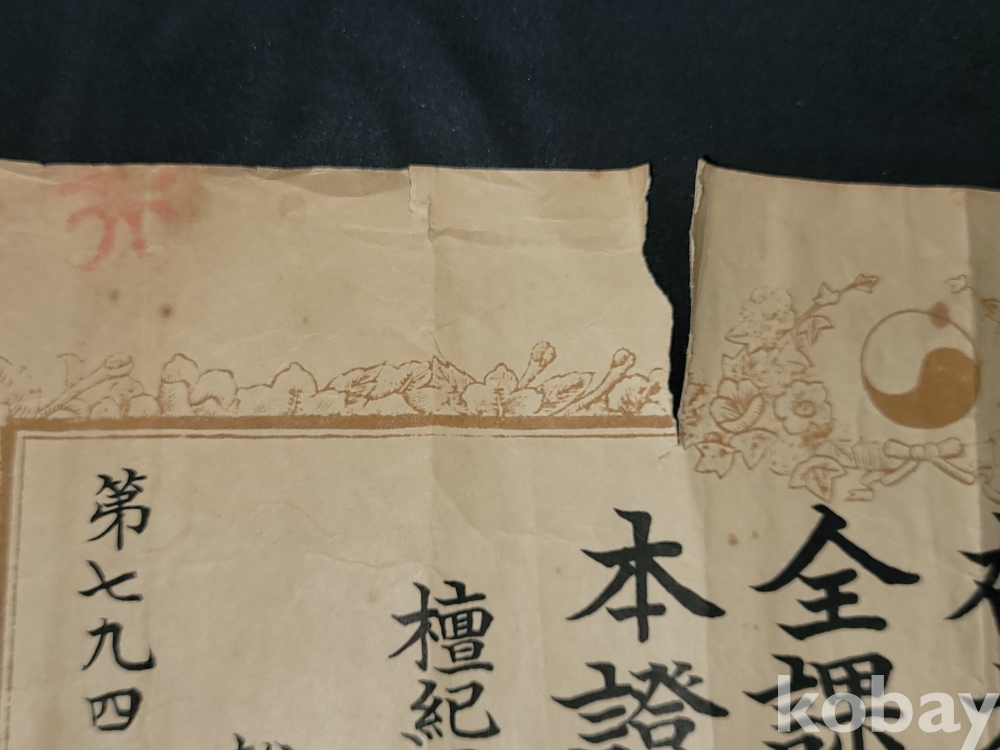 全課
本證
檀紀
第七九四
kobay